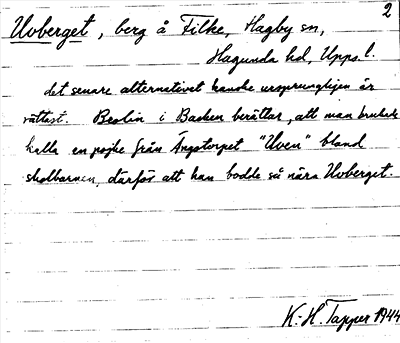 2
Uvberget, berg å Filke, Hagby sn,
Hagunda hd, Upps. l.
det senare alternativet kanske ursprungligen är
rättast. Beslin i Backen berättar, att man brukade
kalla en pojke från Ängstorpet "Uven" bland
skolbarnen, därför att han bodde så nära Uvberget.
K.-H. Tapper 1944